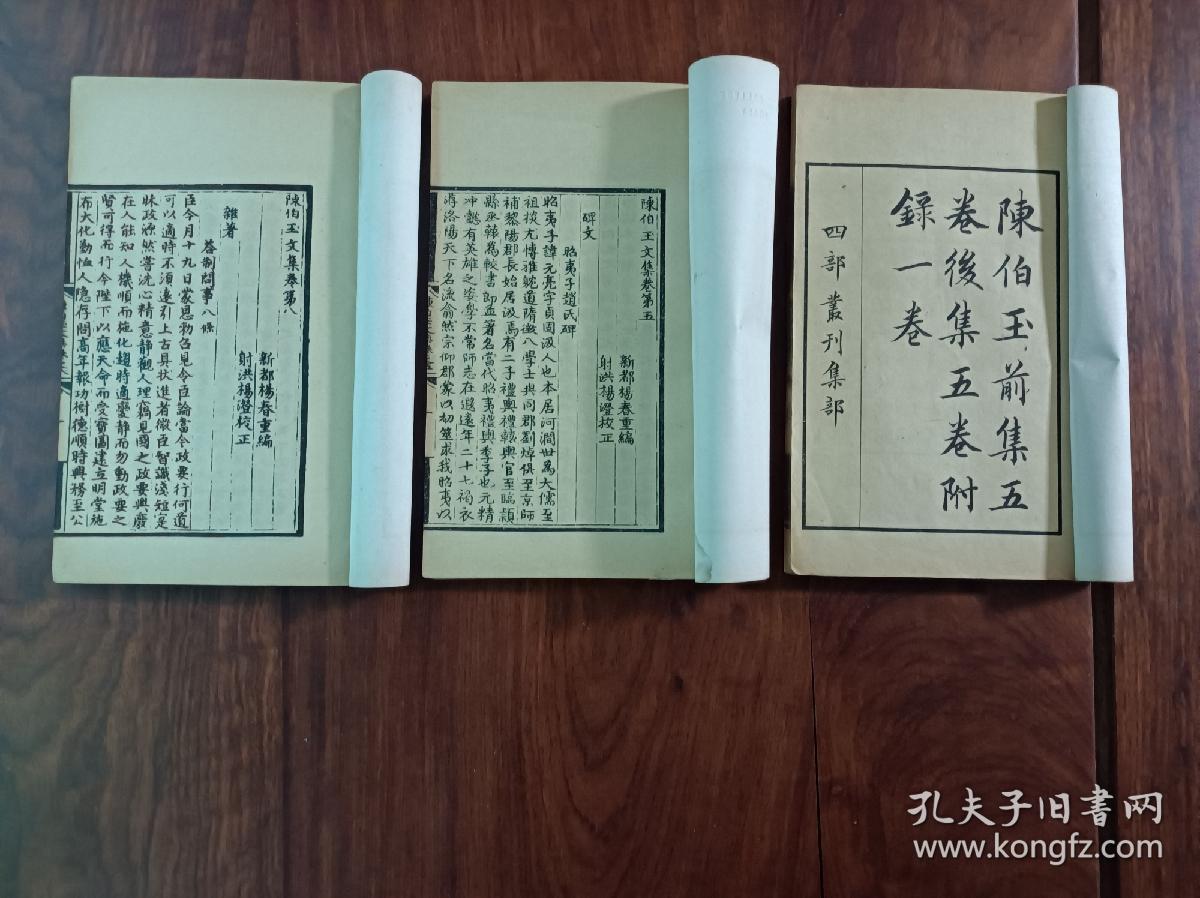 陳伯玉前集五
卷後集五卷附
錄一卷
四部叢刊集部
陳伯玉文集卷第五
新都楊春重編
射洪楊澄校正
碑文
昭夷子趙氏碑
昭夷子諱元亮字貞固汲人也本居河澗世為大儒至
祖挍尤博雅能道隋徵八學士與同郡劉焯俱至京師
補黎陽郡長始居汲焉有二子禮輿禮轅輿官至臨潁
縣丞轅為較書郎並著名當代昭夷禮輿季子也元精
冲懿有英雄之姿學不常師志在遐遠年二十七褐衣
遊洛陽天下名流翕然宗仰郡蒙以初筮求我昭夷以
陳伯玉文集卷第八
新都楊春重編
射洪楊澄校正
雜著
荅制問事八條
臣今月十九日蒙恩勑召見令臣論當今政要行何道
可以適時不須遠引上古具狀進者微臣智識淺短定
昧政源然嘗洗心精意靜觀人理竊見國之政要興廢
在人能知人機順而施化趨時適變靜而勿動政要之
貿可得而行今陛下以應天命而受寶圖建立明堂施
布大化勤恤人隱存問高年報功樹德順時興務至公
孔夫子旧书网
www.kongfz.com